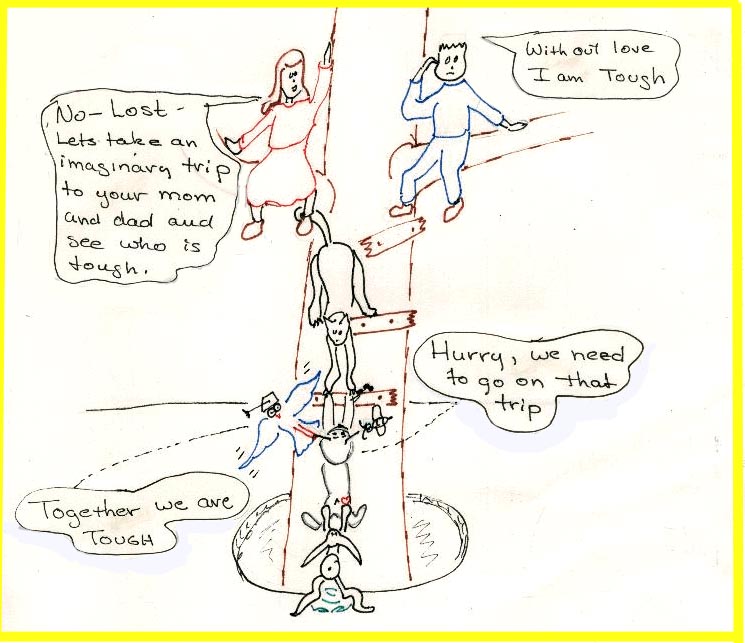 Without love
I am Tough
No-Lost-
Lets take an
imaginary trip
to your mom
and dad and
see who is
tough.
Hurry, we need
to go on that
trip
Together we are
TOUGH